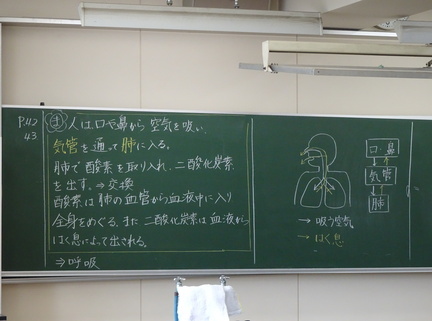 P.42
43
ま 人は、口や鼻から 空気を吸い、
気管を通って肺に入る。
肺で 酸素を取り入れ、二酸化炭素
を出す。⇒交換
酸素は 肺の血管から血液中に入り
全身をめぐる。また 二酸化炭素は血液から
はく息によって出される。
⇒呼吸
→ 吸う空気
→ はく息
口・鼻
気管
肺